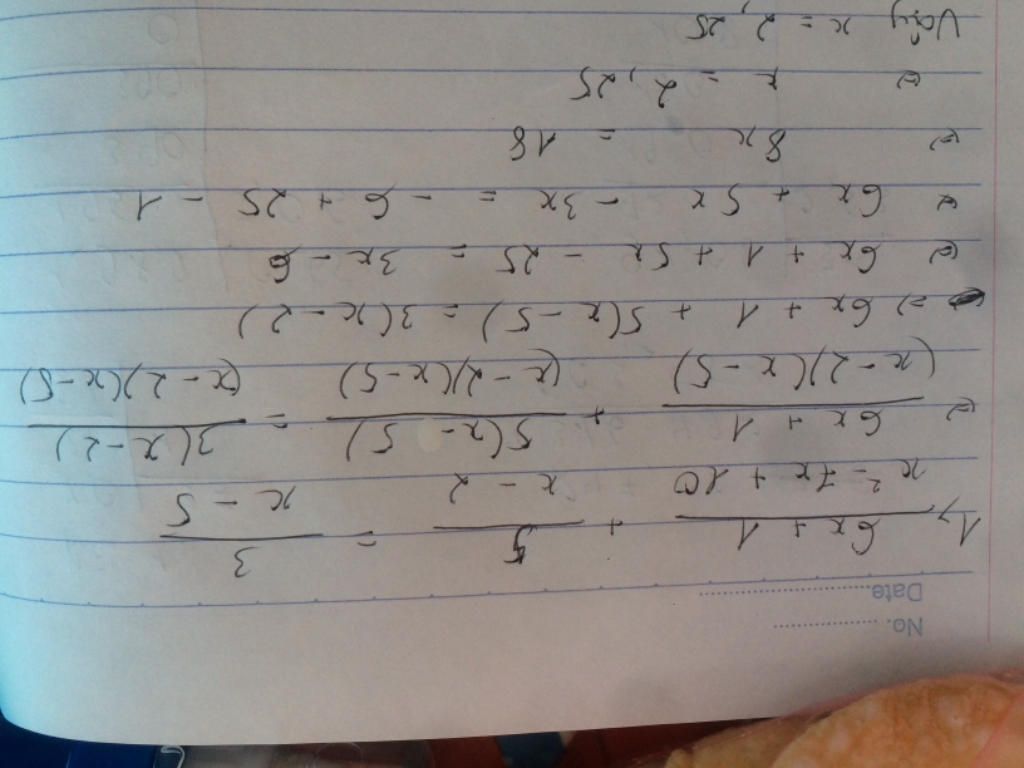 No. ..........
Date ....................
1, (6x + 1)/(x² - 7x + 10) + 5/(x - 2) = 3/(x - 5)
⇔ (6x + 1)/((x - 2)(x - 5)) + 5(x - 5)/((x - 2)(x - 5)) = 3(x - 2)/((x - 2)(x - 5))
⇒ 6x + 1 + 5(x - 5) = 3(x - 2)
⇔ 6x + 1 + 5x - 25 = 3x - 6
⇔ 6x + 5x - 3x = - 6 + 25 - 1
⇔ 8x = 18
⇔ x = 2,25
Vậy x = 2,25